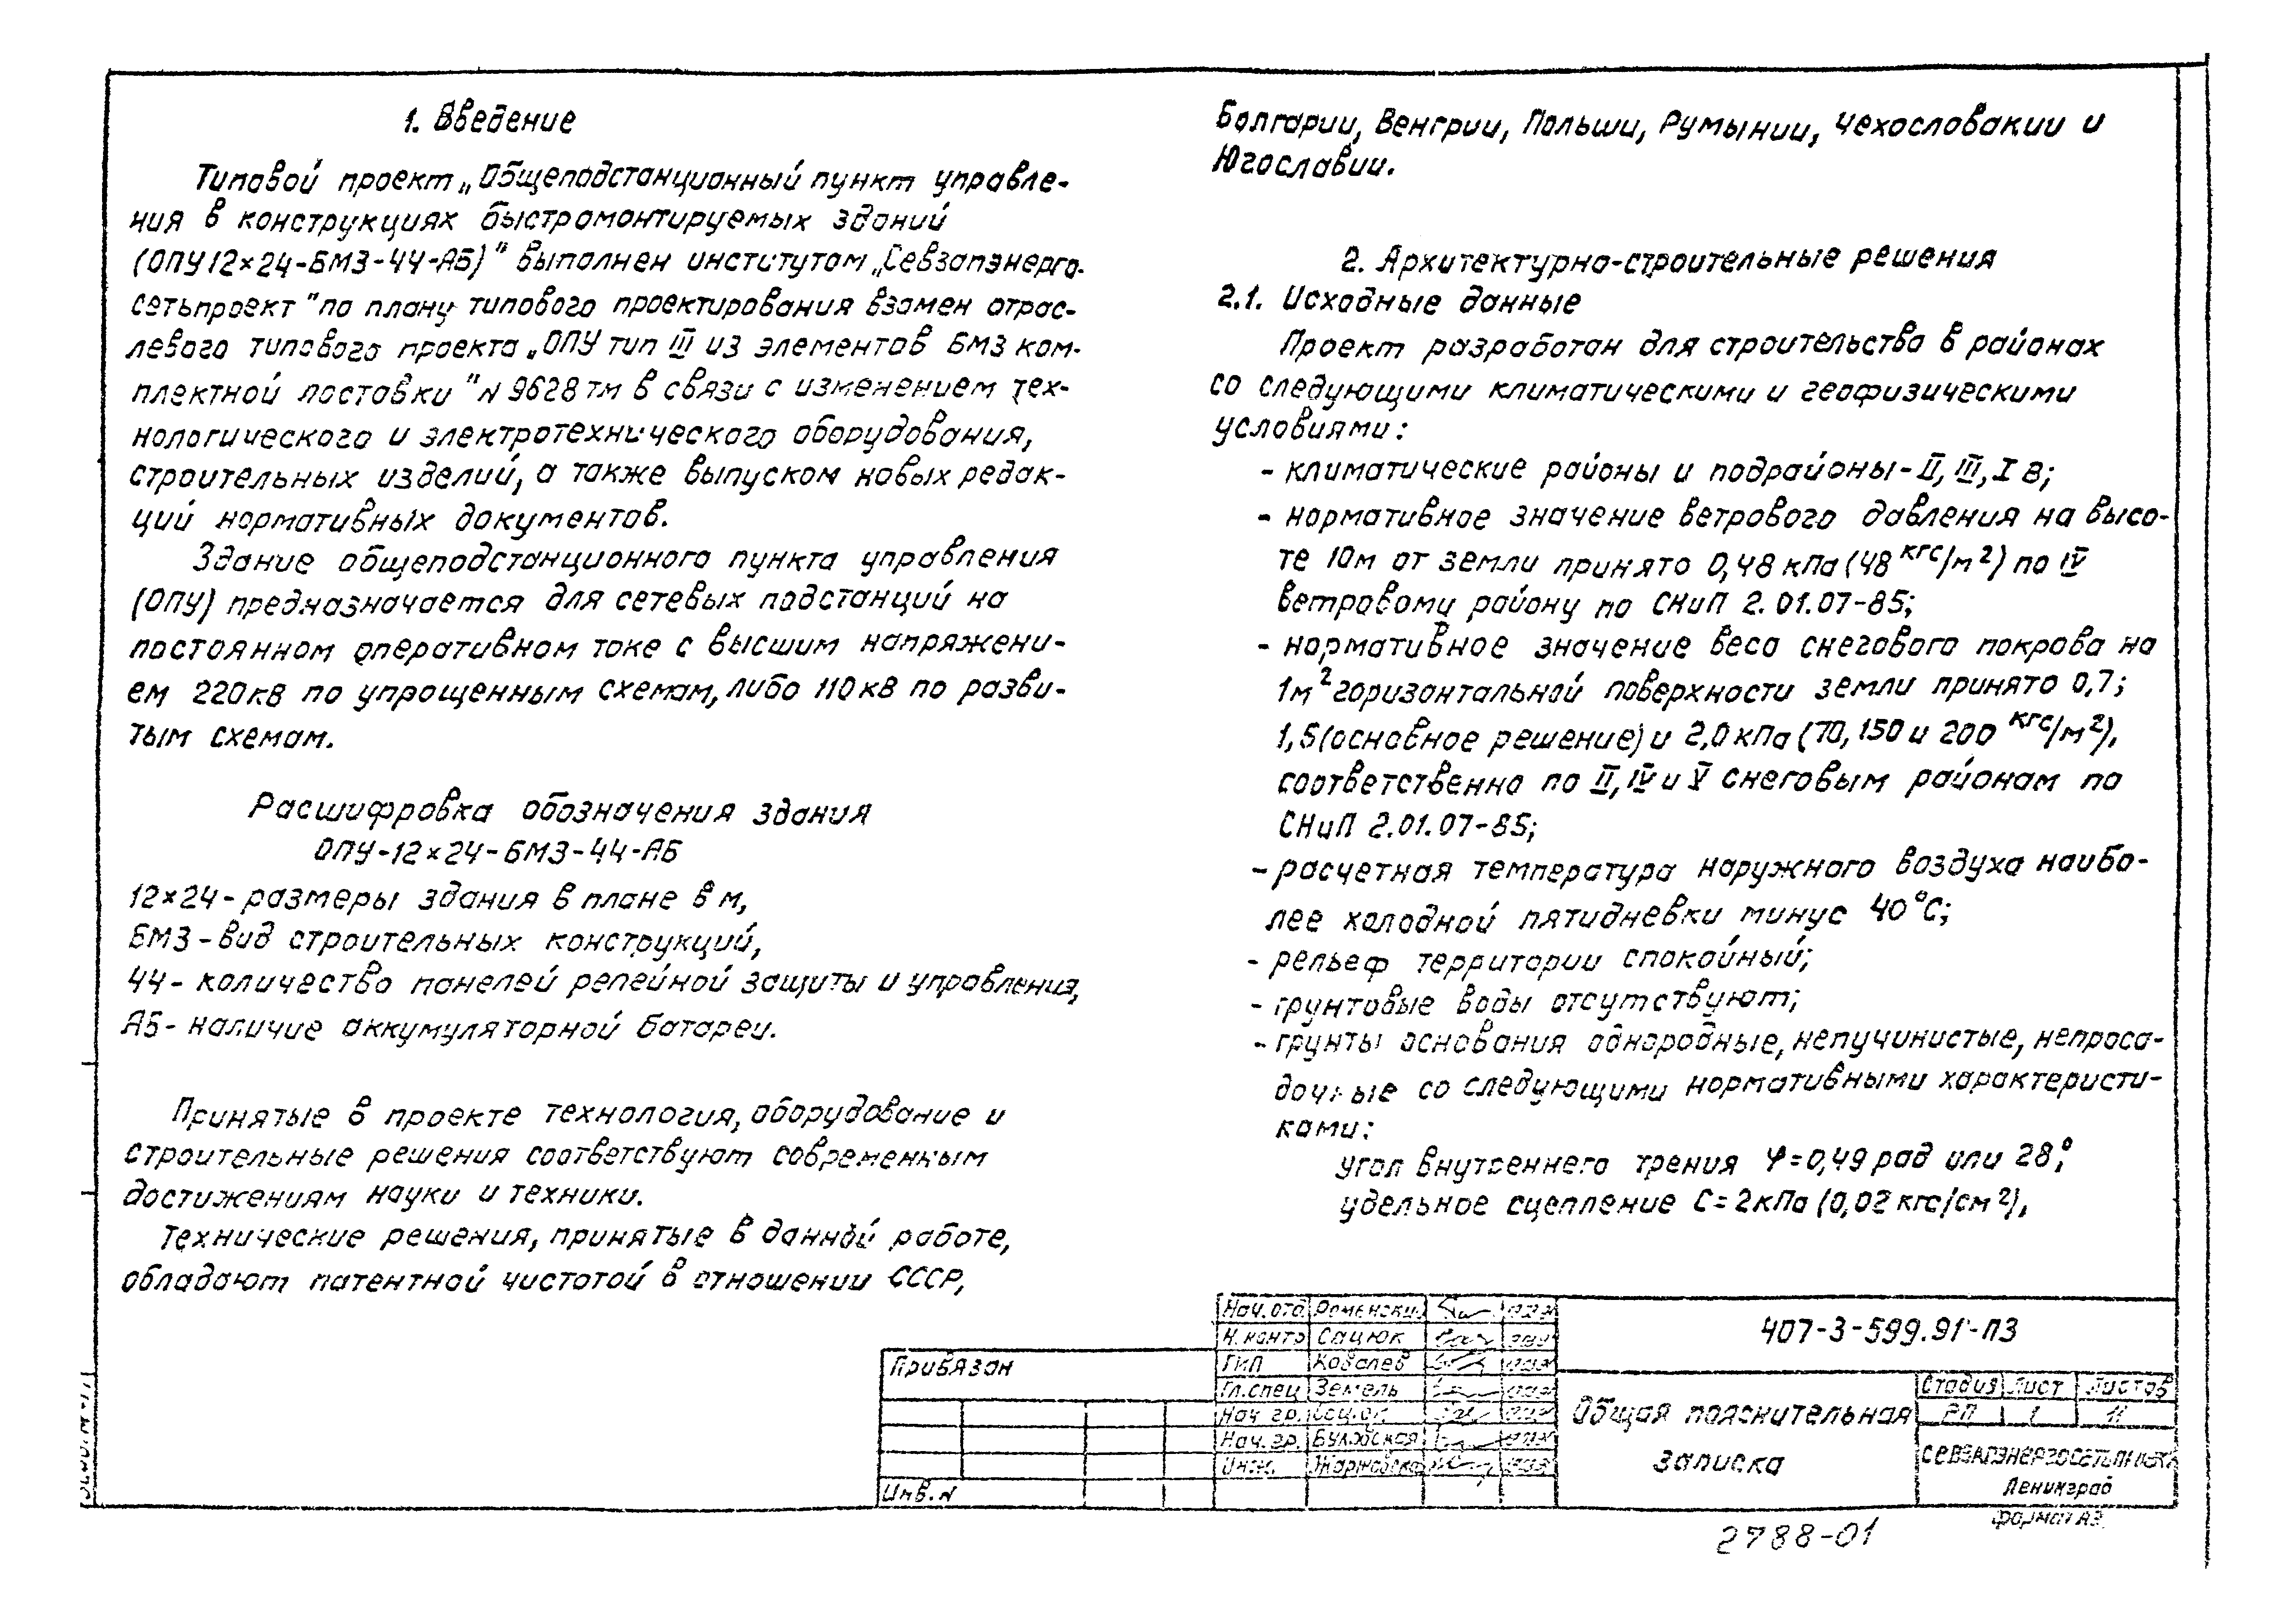 1. Введение
Типовой проект „Общеподстанционный пункт управле-
ния в конструкциях быстромонтируемых зданий
(ОПУ12×24-БМЗ-44-АБ)" выполнен институтом „Севзапэнерго-
сетьпроект" по плану типового проектирования взамен отрас-
левого типового проекта „ОПУ тип III из элементов БМЗ ком-
плектной поставки" N 9628тм в связи с изменением тех-
нологического и электротехнического оборудования,
строительных изделий, а также выпуском новых редак-
ций нормативных документов.
Здание общеподстанционного пункта управления
(ОПУ) предназначается для сетевых подстанций на
постоянном оперативном токе с высшим напряжени-
ем 220кВ по упрощенным схемам, либо 110кВ по разви-
тым схемам.
Расшифровка обозначения здания
ОПУ-12×24-БМЗ-44-АБ
12×24- размеры здания в плане в м,
БМЗ-вид строительных конструкций,
44- количество панелей релейной защиты и управления,
АБ- наличие аккумуляторной батареи.
Принятые в проекте технология, оборудование и
строительные решения соответствуют современным
достижениям науки и техники.
Технические решения, принятые в данной работе,
обладают патентной чистотой в отношении СССР,
Болгарии, Венгрии, Польши, Румынии, Чехословакии и
Югославии.
2. Архитектурно-строительные решения
2.1. Исходные данные
Проект разработан для строительства в районах
со следующими климатическими и геофизическими
условиями:
- климатические районы и подрайоны - II, III, I В;
- нормативное значение ветрового давления на высо-
те 10м от земли принято 0,48 кПа (48 кгс/м²) по IV
ветровому району по СНиП 2.01.07-85;
- нормативное значение веса снегового покрова на
1м² горизонтальной поверхности земли принято 0,7;
1,5(основное решение) и 2,0кПа (70, 150 и 200 кгс/м²),
соответственно по II, IV и V снеговым районам по
СНиП 2.01.07-85;
- расчетная температура наружного воздуха наибо-
лее холодной пятидневки минус 40°С;
- рельеф территории спокойный;
- грунтовые воды отсутствуют;
- грунты основания однородные, непучинистые, непроса-
дочные со следующими нормативными характеристи-
ками:
угол внутреннего трения φ=0,49 рад или 28°;
удельное сцепление С=2кПа (0,02 кгс/см²),
Привязан
Инв. N
Нач. отд Роменский
Н. контр Сацюк
ГИП Ковалев
Гл.спец Земель
Нач. гр.
Нач. гр.
Инж.
407-3-599.91-ПЗ
Общая пояснительная
записка
Стадия Лист Листов
РП 1 11
СЕВЗАПЭНЕРГОСЕТЬПРОЕКТ
Ленинград
формат А3
2788-01